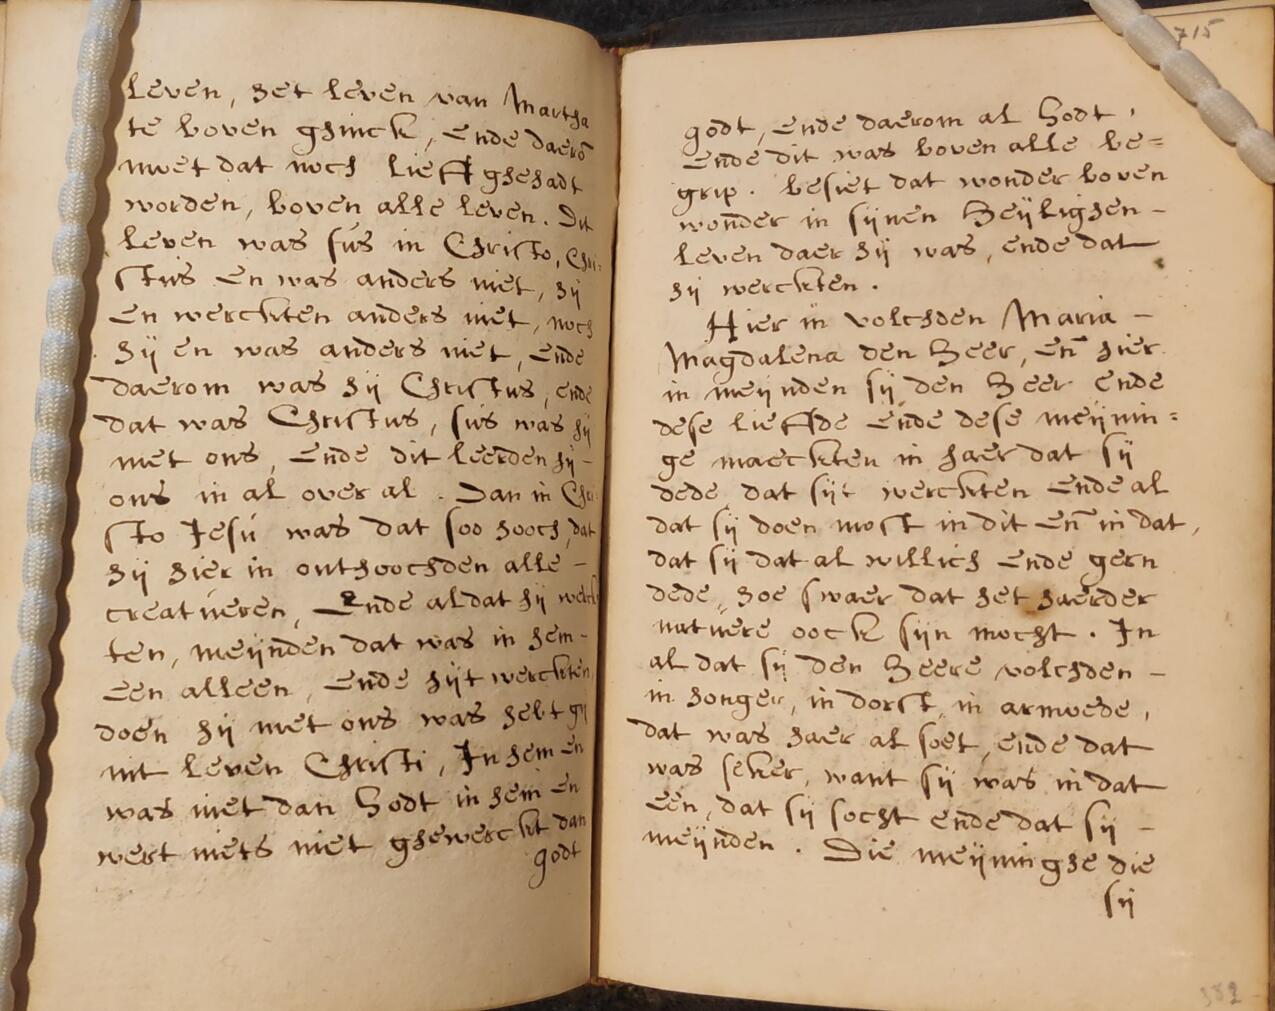 leven, het leven van Martha
te boven ghinck, ende daerō
moet dat noch liefft ghehadt
worden, boven alle leven. Dit
leven was sús in Christo, Chri-
stús en was anders niet, hij
en werckten anders niet, noch
hij en was anders niet, ende
daerom was hij Christús, ende
dat was Christús, sús was hij
met ons, ende dit leerden hij –
ons in al over al. Dan in Chri
sto Jesú was dat soo hooch, dat
hij hier in onthoochden alle –
creatúeren, Ende al dat hij werck
ten, meijnden dat was in hem –
een alleen, ende hijt werckten
doen hij met ons was hebt gij
int leven Christi, In hem en
was niet dan Godt in hem en
wert niets niet ghewerckt dan
godt
715
godt, ende daerom al Godt,
ende dit was boven alle be=
grip. besiet dat wonder boven
wonder in sijnen Heijlighen –
leven daer hij was, ende dat
hij werckten.
Hier in volchden Maria –
Magdalena den Heer, en̄ hier
in meijnden sij den Heer ende
dese lieffde ende dese meijnin=
ge maeckten in haer dat sij
dede dat sijt werckten ende al
dat sij doen most in dit en̄ in dat,
dat sij dat al willich ende gern
dede, hoe swaer dat het haerder
natuere oock sijn mocht. In
al dat sij den Heere volchden –
in honger, in dorst, in armoede,
dat was haer al soet, ende dat
was seker, want sij was in dat
een, dat sij socht ende dat sij –
meijnden. Die meijninghe die
sij
382